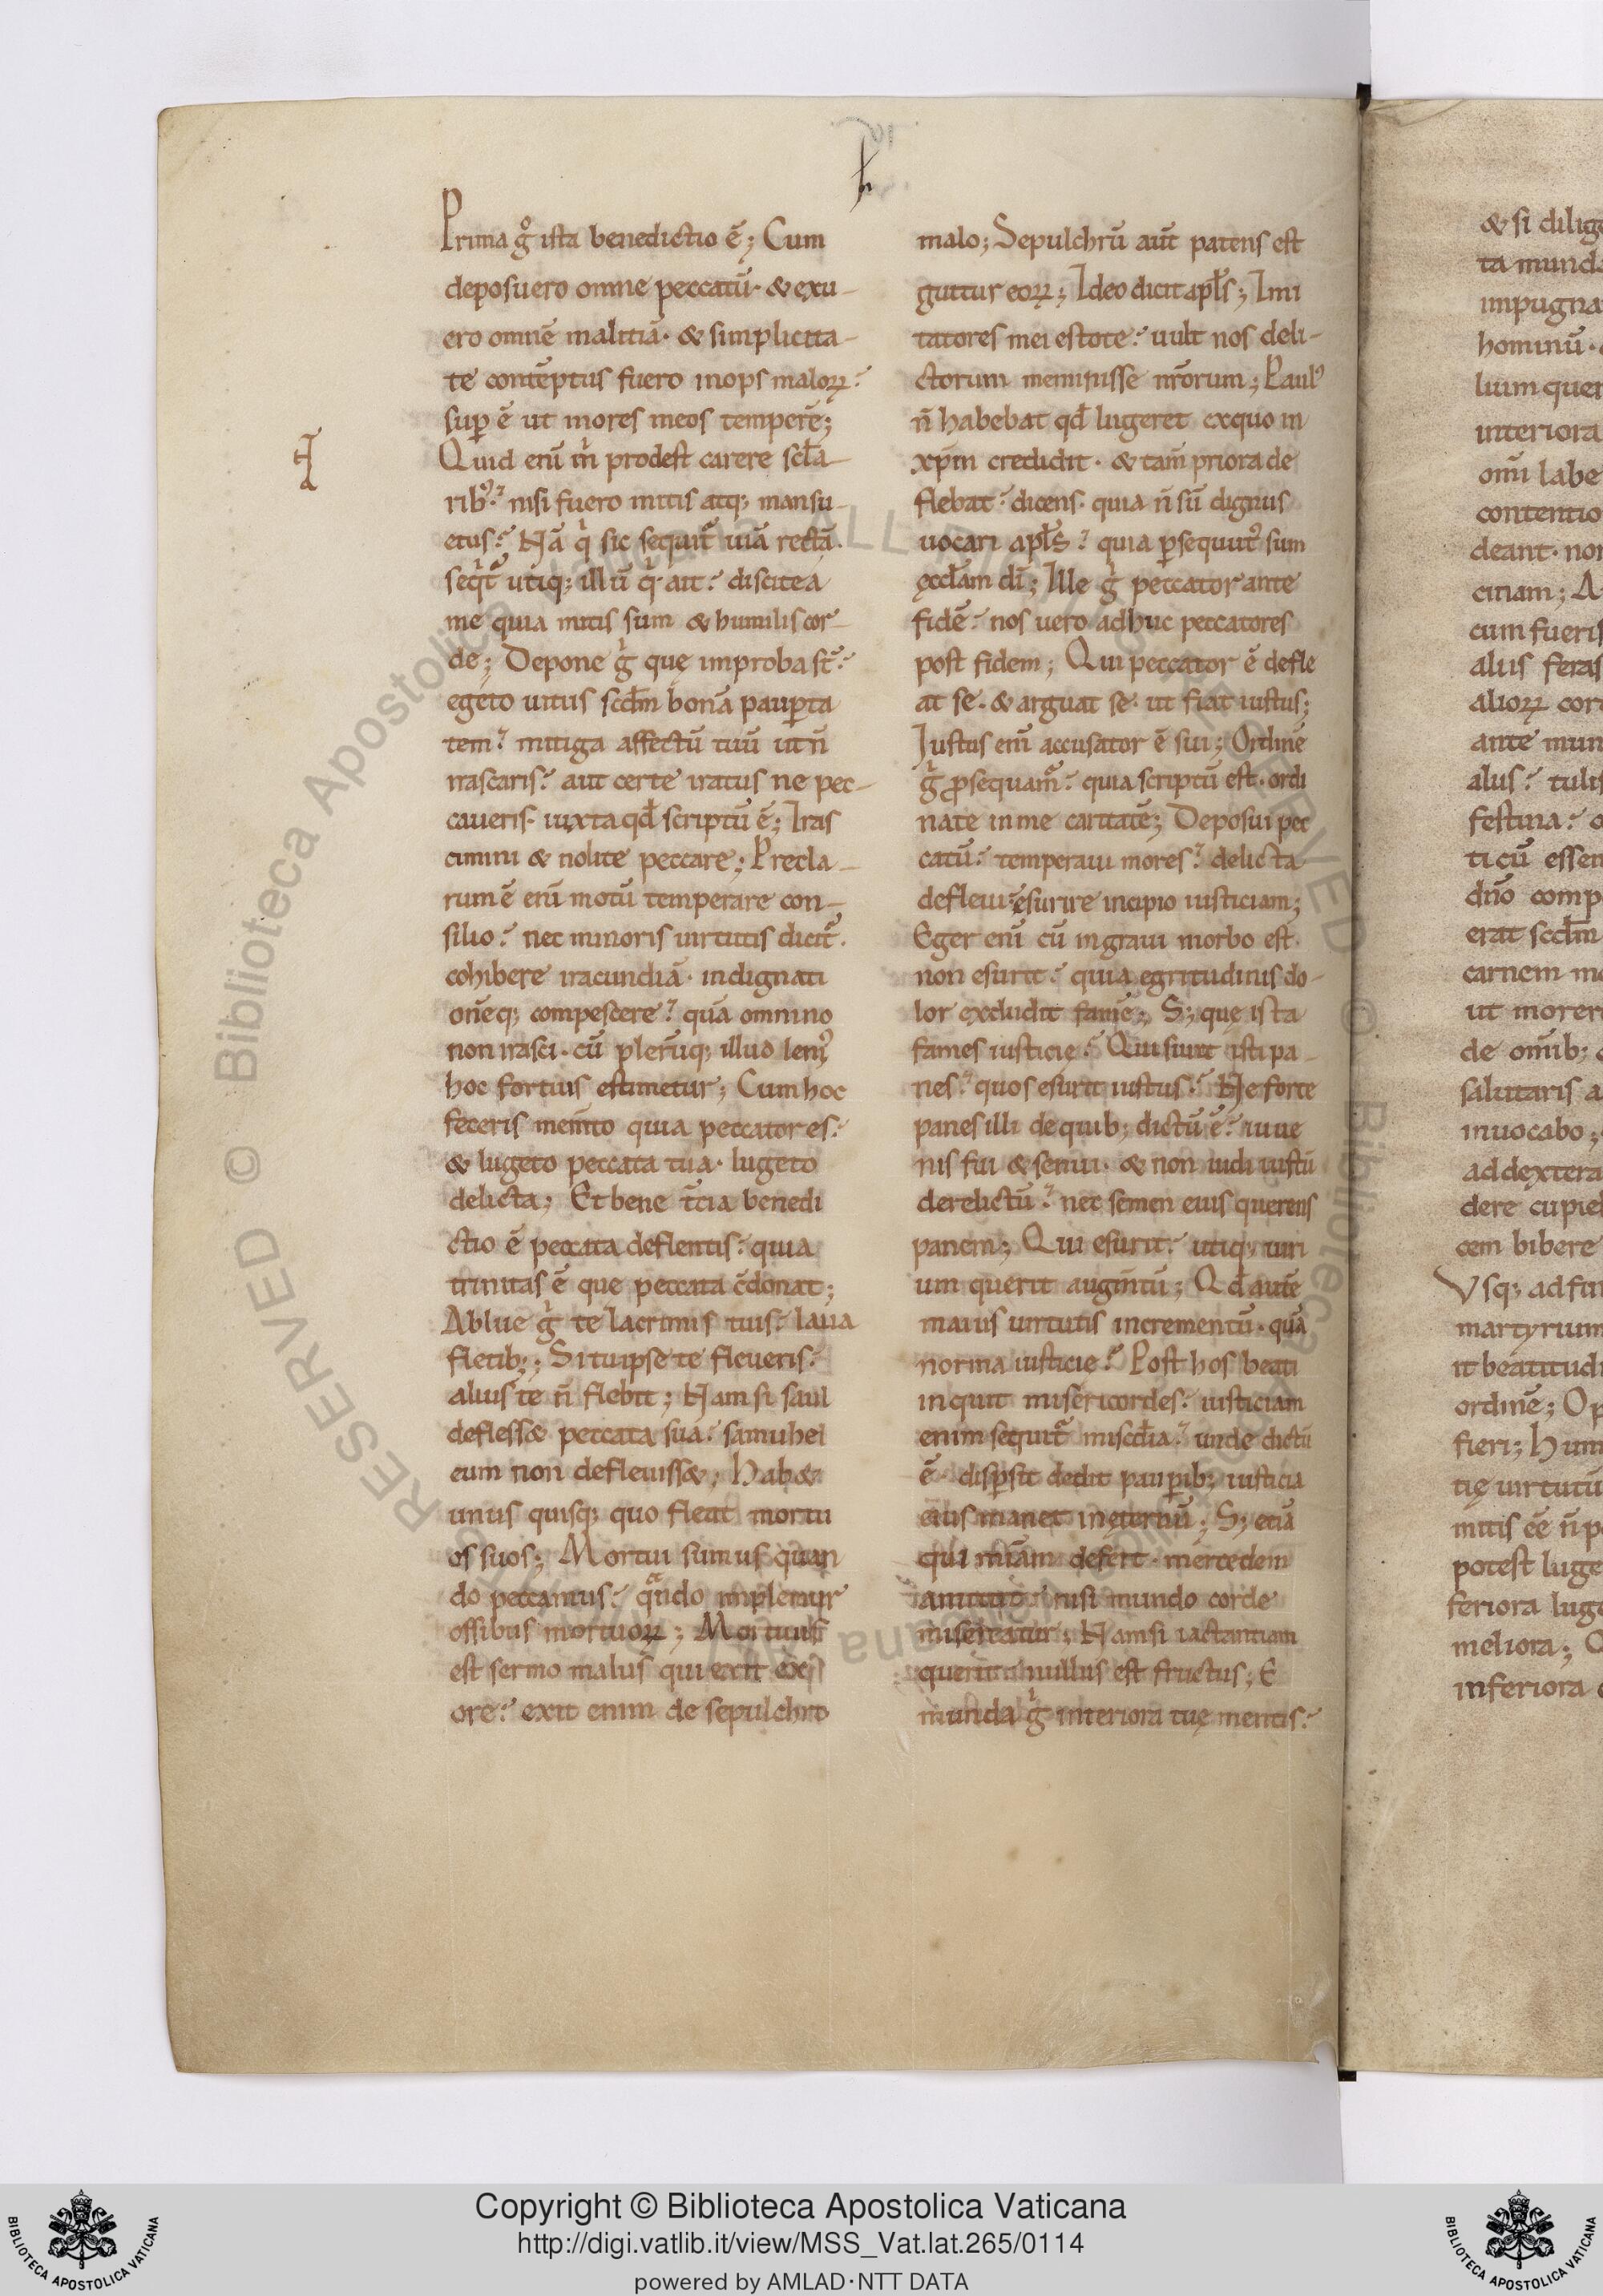 Prima gͦ ista benedictio ē; Cum
deposuero omne peccatū· & exu-
ero omnē malitiā· & simplicita-
te contēptus fuero inops maloꝝ:
suꝑ ē ut mores meos temperē;
Quid enī m̄ prodest carere scl̄a-
ribꝰ: nisi fuero mitis atq; mansu-
etus: Nā qͥ sic sequit᷑ uiā rectā·
seqͥt᷑ utiq; illū qͥ ait: discite a
me quia mitis sum & humilis cor-
de; Depone gͥ quę improba st̄:
egeto uitiis scd̄m bonā pauꝑta
tem: mitiga affectū tuū ut n̄
irascaris: aut certe iratus ne pec-
caueris· iuxta qd̄ scriptū ē; Iras
cimini & nolite peccare; Precla-
rum ē enī motū temperare con-
silio: nec minoris uirtutis dicit᷑·
cohibere iracundiā· indignati
onēq; compescere: quā omnino
non irasci· cū plerūq; illud leniꝰ
hoc fortius estimetur; Cum hoc
feceris mem̄to quia peccator es:
& lugeto peccata tua· lugeto
delicta; Et bene t̄cia benedi
ctio ē peccata deflentis: quia
trinitas ē que peccata c̄donat;
Ablue gͥ te lacrimis tuis: laua
fletib;; Si tu ipse te fleueris:
alius te n̄ flebit; Nam si saul
defless& peccata sua: samuhel
eum non defleuiss&; Hab&
unus quisq; quo fleat mortu
os suos; Mortui sumus quan
do peccamus: qͣndo implemur
ossibus mortuoꝝ; Mortuus
est sermo malus qui exit ex
ore: exit enim de sepulchro
malo; Sepulchrū aut̄ patens est
guttur eoꝝ; Ideo dicit apl̄s; Imi
tatores mei estote: uult nos deli-
ctorum meminisse nr̄orum; Paulꝰ
n̄ habebat qd̄ lugeret exquo in
xp̄m credidit· & tam̄ priora de
flebat: dicens· quia n̄ sū dignus
uocari apl̄s: quia ꝑsequutꝰ sum
ęccl̄am dī; Ille gͥ peccator ante
fidē: nos uero adhuc peccatores
post fidem; Qui peccator ē defle
at se· & arguat se· ut fiat iustus;
Iustus enī accusator ē sui; Ordinē
gͥ ꝓsequam᷑: quia scriptū est· ordi
nate in me caritatē; Deposui pec
catū: temperaui mores: delicta
defleui: esurire incipio iusticiam;
Eger enī cū in graui morbo est·
non esurit: quia egritudinis do-
lor excludit famē; S; quę ista
fames iusticie: Qui sunt isti pa-
nes: quos esurit iustus: Ne forte
panes illi de quib; dictū ē: iuue
nis fui & senui· & non uidi iustū
derelictū: nec semen eius querens
panem; Qui esurit: utiq; uiri
um querit augm̄tū; Qd̄ autē
maius uirtutis incrementū· quā
norma iusticie: Post hos beati
inquit misericordes: iusticiam
enim sequit᷑ miscd̄ia: unde dictū
ē· disꝑsit dedit pauꝑib; iusticia
eius manet in ęternū; S; etiā
qui mīam defert· mercedem
amittit nisi mundo corde
misereatur; Nam si iactantiam
querit nullus est fructus; E
munda gͥ interiora tuę mentis:
& si dilig
ta mund
impugna
hominū·
lium quer
interiora
om̄i labe
contentio
deant· non
citiam; A
cum fueris
alus feras
alioꝝ cor
ante mun
alus: tulis
festina:
ti cū essem
dn̄o comp
erat scd̄m
carnem m
ut morer
de om̄ib;
salutaris a
inuocabo;
ad dextera
dere cupie
cem bibere
Vsq; ad fin
martyrium
it beatitudi
ordinē; Op
fieri; Hum
tię uirtutū
mitis eē n̄ p
potest luge
feriora lug
meliora;
inferiora
Copyright © Biblioteca Apostolica Vaticana
http://digi.vatlib.it/view/MSS_Vat.lat.265/0114
powered by AMLAD·NTT DATA
BIBLIOTECA APOSTOLICA VATICANA
BIBLIOTECA APOSTOLICA VATICANA